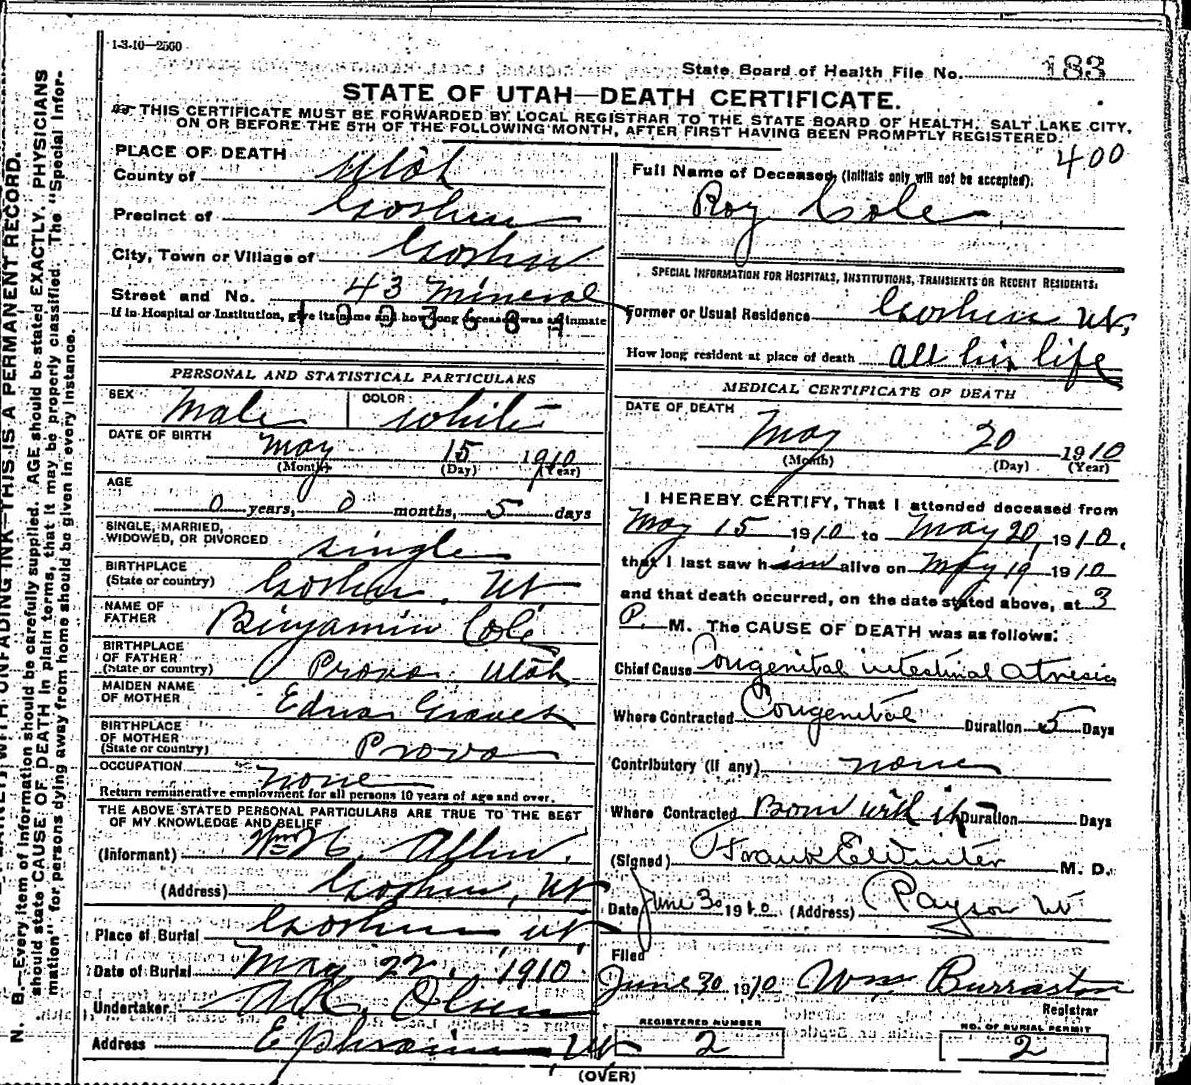 1-3-10—2500
State Board of Health File No. 183
STATE OF UTAH—DEATH CERTIFICATE.
THIS CERTIFICATE MUST BE FORWARDED BY LOCAL REGISTRAR TO THE STATE BOARD OF HEALTH, SALT LAKE CITY,
ON OR BEFORE THE 5TH OF THE FOLLOWING MONTH, AFTER FIRST HAVING BEEN PROMPTLY REGISTERED.
400
PLACE OF DEATH
County of Utah
Precinct of Goshen
City, Town or Village of Goshen
Street and No. 43 Mineral
If in Hospital or Institution, give its name and how long deceased was an inmate
PERSONAL AND STATISTICAL PARTICULARS
SEX Male COLOR White
DATE OF BIRTH May 15 1910
(Month) (Day) (Year)
AGE
0 years, 0 months, 5 days
SINGLE, MARRIED,
WIDOWED, OR DIVORCED single
BIRTHPLACE
(State or country) Goshen, Ut.
NAME OF
FATHER Binjamin Cole
BIRTHPLACE
OF FATHER
(State or country) Provo Utah
MAIDEN NAME
OF MOTHER Edna Graves
BIRTHPLACE
OF MOTHER
(State or country) Provo
OCCUPATION none
Return remunerative employment for all persons 10 years of age and over.
THE ABOVE STATED PERSONAL PARTICULARS ARE TRUE TO THE BEST
OF MY KNOWLEDGE AND BELIEF
(Informant) Allen.
(Address) Goshen, Ut
Place of Burial Goshen Ut.
Date of Burial May 22, 1910
Undertaker Olsen
Address Ephraim Ut
Full Name of Deceased (Initials only will not be accepted).
Roy Cole
SPECIAL INFORMATION FOR HOSPITALS, INSTITUTIONS, TRANSIENTS OR RECENT RESIDENTS:
Former or Usual Residence Goshen Ut,
How long resident at place of death all his life
MEDICAL CERTIFICATE OF DEATH
DATE OF DEATH
May 20 1910
(Month) (Day) (Year)
I HEREBY CERTIFY, That I attended deceased from
May 15 1910 to May 20, 1910,
that I last saw him alive on May 19 1910
and that death occurred, on the date stated above, at 3
P. M. The CAUSE OF DEATH was as follows:
Chief Cause Congenital intestinal atresia
Where Contracted Congenital Duration 5 Days
Contributory (if any) none
Where Contracted Born with it Duration Days
(Signed) Frank E. Winter M. D.
Date June 30 1910 (Address) Payson Ut
Filed
June 30 1910 Wm Burraston
Registrar
REGISTERED NUMBER
2
NO. OF BURIAL PERMIT
2
(OVER)
N. B.—Every item of information should be carefully supplied. AGE should be stated EXACTLY. PHYSICIANS
should state CAUSE OF DEATH in plain terms, that it may be properly classified. The "Special Infor-
mation" for persons dying away from home should be given in every instance.